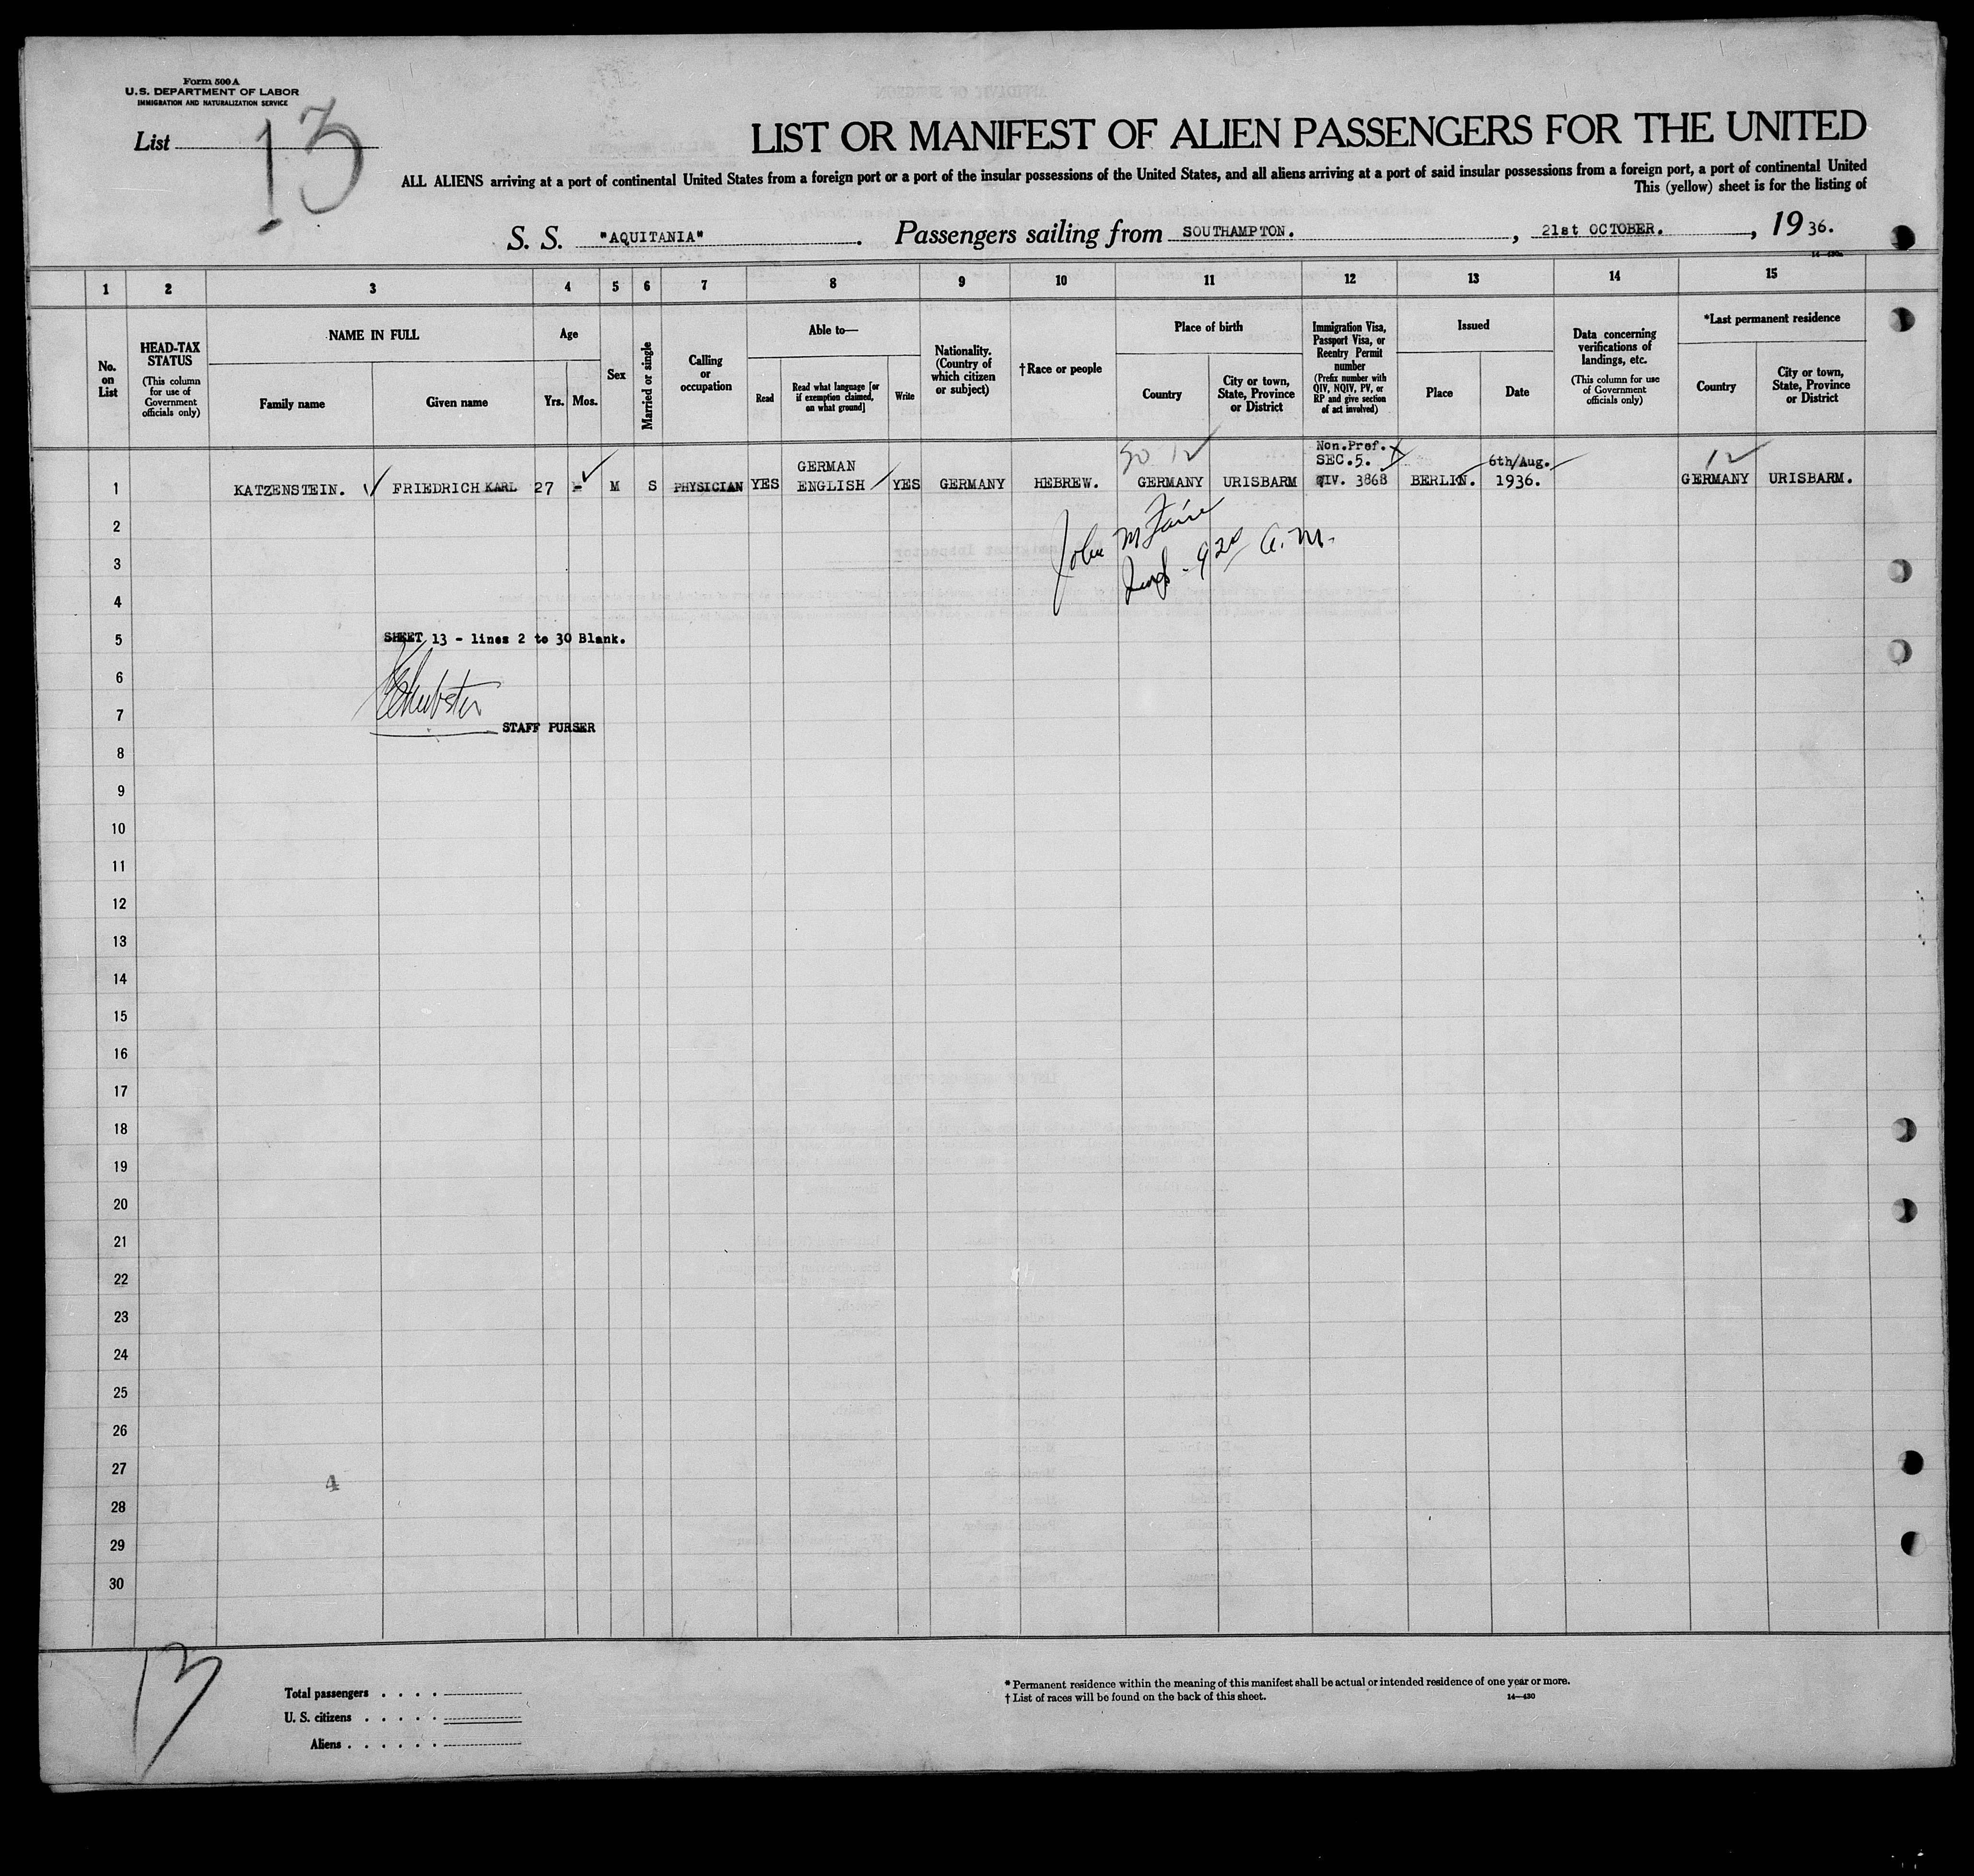 Form 500 A
U. S. DEPARTMENT OF LABOR
IMMIGRATION AND NATURALIZATION SERVICE
List 13
LIST OR MANIFEST OF ALIEN PASSENGERS FOR THE UNITED
ALL ALIENS arriving at a port of continental United States from a foreign port or a port of the insular possessions of the United States, and all aliens arriving at a port of said insular possessions from a foreign port, a port of continental United
This (yellow) sheet is for the listing of
S. S. "AQUITANIA" . Passengers sailing from SOUTHAMPTON. , 21st OCTOBER. , 19 36.
14—430a
1 2 3 4 5 6 7 8 9 10 11 12 13 14 15
No. on List
HEAD-TAX STATUS
(This column for use of Government officials only)
NAME IN FULL
Family name
Given name
Age
Yrs. Mos.
Sex
Married or single
Calling or occupation
Able to—
Read
Read what language [or if exemption claimed, on what ground]
Write
Nationality. (Country of which citizen or subject)
†Race or people
Place of birth
Country
City or town, State, Province or District
Immigration Visa, Passport Visa, or Reentry Permit number
(Prefix number with QIV, NQIV, PV, or RP and give section of act involved)
Issued
Place
Date
Data concerning verifications of landings, etc.
(This column for use of Government officials only)
*Last permanent residence
Country
City or town, State, Province or District
Non.Pref.
GERMAN SEC.5. 6th/Aug.
1 KATZENSTEIN. FRIEDRICH KARL 27 - M S PHYSICIAN YES ENGLISH YES GERMANY HEBREW. GERMANY URISBARM QIV. 3868 BERLIN. 1936. GERMANY URISBARM.
2
John M
3
920 A.M.
4
5 SHEET 13 - lines 2 to 30 Blank.
6
7
STAFF PURSER
8
9
10
11
12
13
14
15
16
17
18
19
20
21
22
23
24
25
26
27
4
28
29
30
13
Total passengers . . . .
U. S. citizens . . . . .
Aliens . . . . . .
* Permanent residence within the meaning of this manifest shall be actual or intended residence of one year or more.
† List of races will be found on the back of this sheet.
14—430